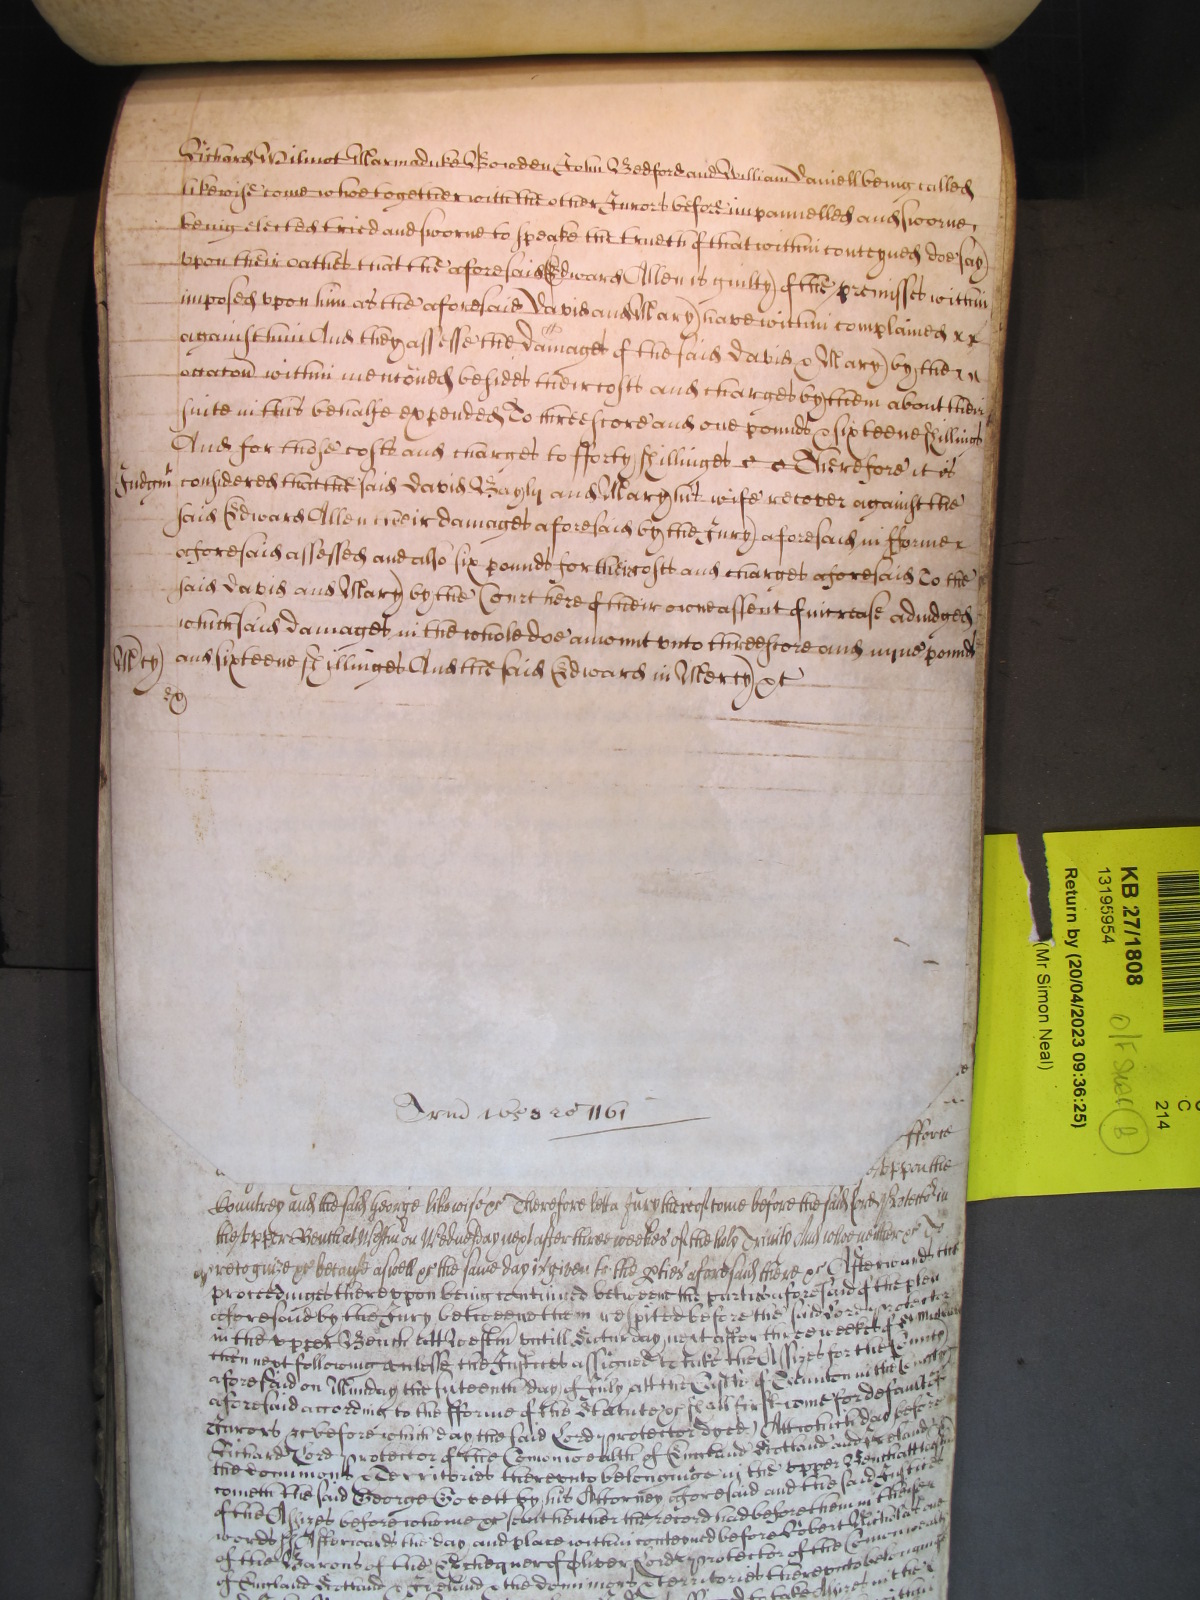 Richard Wilmot Marmaduke Bowden John Bedford and William Daniell being called
likewise come whoe together with the other Jurors before impannelled and sworne
being elected tried and sworne to speake the trueth of that within conteyned doe say
vpon their oathes that the aforesaid Edward Allen is guilty of the premisses within
imposed vpon him as the aforesaid David and Mary have within complained
against him And they assesse the damages of the said David & Mary by the
occacon within menconed besides their costs and charges by them about their
suite in this behalfe expended To threescore and one pounds & sixteene shillings
And for those costs and charges to fforty shillinges Therefore it is
Judgmt considered that the said David Bayly and Mary his wife recover against the
said Edward Allen their damages aforesaid by the Jury aforesaid in fforme
aforesaid assessed and also six pounds for their costs and charges aforesaid To the
said David and Mary by the Court here of their owne assent of increase adiudged
which said damages in the whole doe amount vnto threescore and nine pounds
Mcy and sixteene shillinges And the said Edward in Mercy &c
Trin 1658 ro 1161
fforte
vppon the
Countrey and the said George likewise &c Therefore lett a Jury thereof come before the said Lord Protector in
the vpper Bench at Westm on Wednesday next after three weekes of the holy Trinity And whoe neither &c To
recognize &c because aswell &c the same day is given to the pties aforesaid there &c Afterwards the
proceedinges therevpon being continued betweene the parties aforesaid of the plea
aforesaid by the Jury betweene them respited before the said Lord Protector
in the vpper Bench att Westm vntill Saturday next after three weekes of St Michael
then next following vnlesse the Justices assigned to take the Assizes for the County
aforesaid on Munday the day of July att the Castle of Taunton in the County
aforesaid according to the fforme of the Statute &c shall first come for default of
Jurors &c before which day the said Lord protector dyed Att which day before
Richard Lord protector of the Comonwealth of England Scotland and Ireland
the dominions & Territories therevnto belonginge in the vpper Bench att Westm
cometh the said George Govett by his Attorney aforesaid and the said Justices
of the Assizes before whome &c sent hether the record had before them in theise
words ss Afterwards the day and place within conteyned before Robert Nicholas one
of the Barons of the Exchequer of Oliver Lord protector of the Comonwealth
of England Scotland & Ireland & the dominions & Territories therevnto belonginge
to take Assizes in the
KB 27/1808
13195954
Return by (20/04/2023 09:36:25)
(Mr Simon Neal)
C
214
B